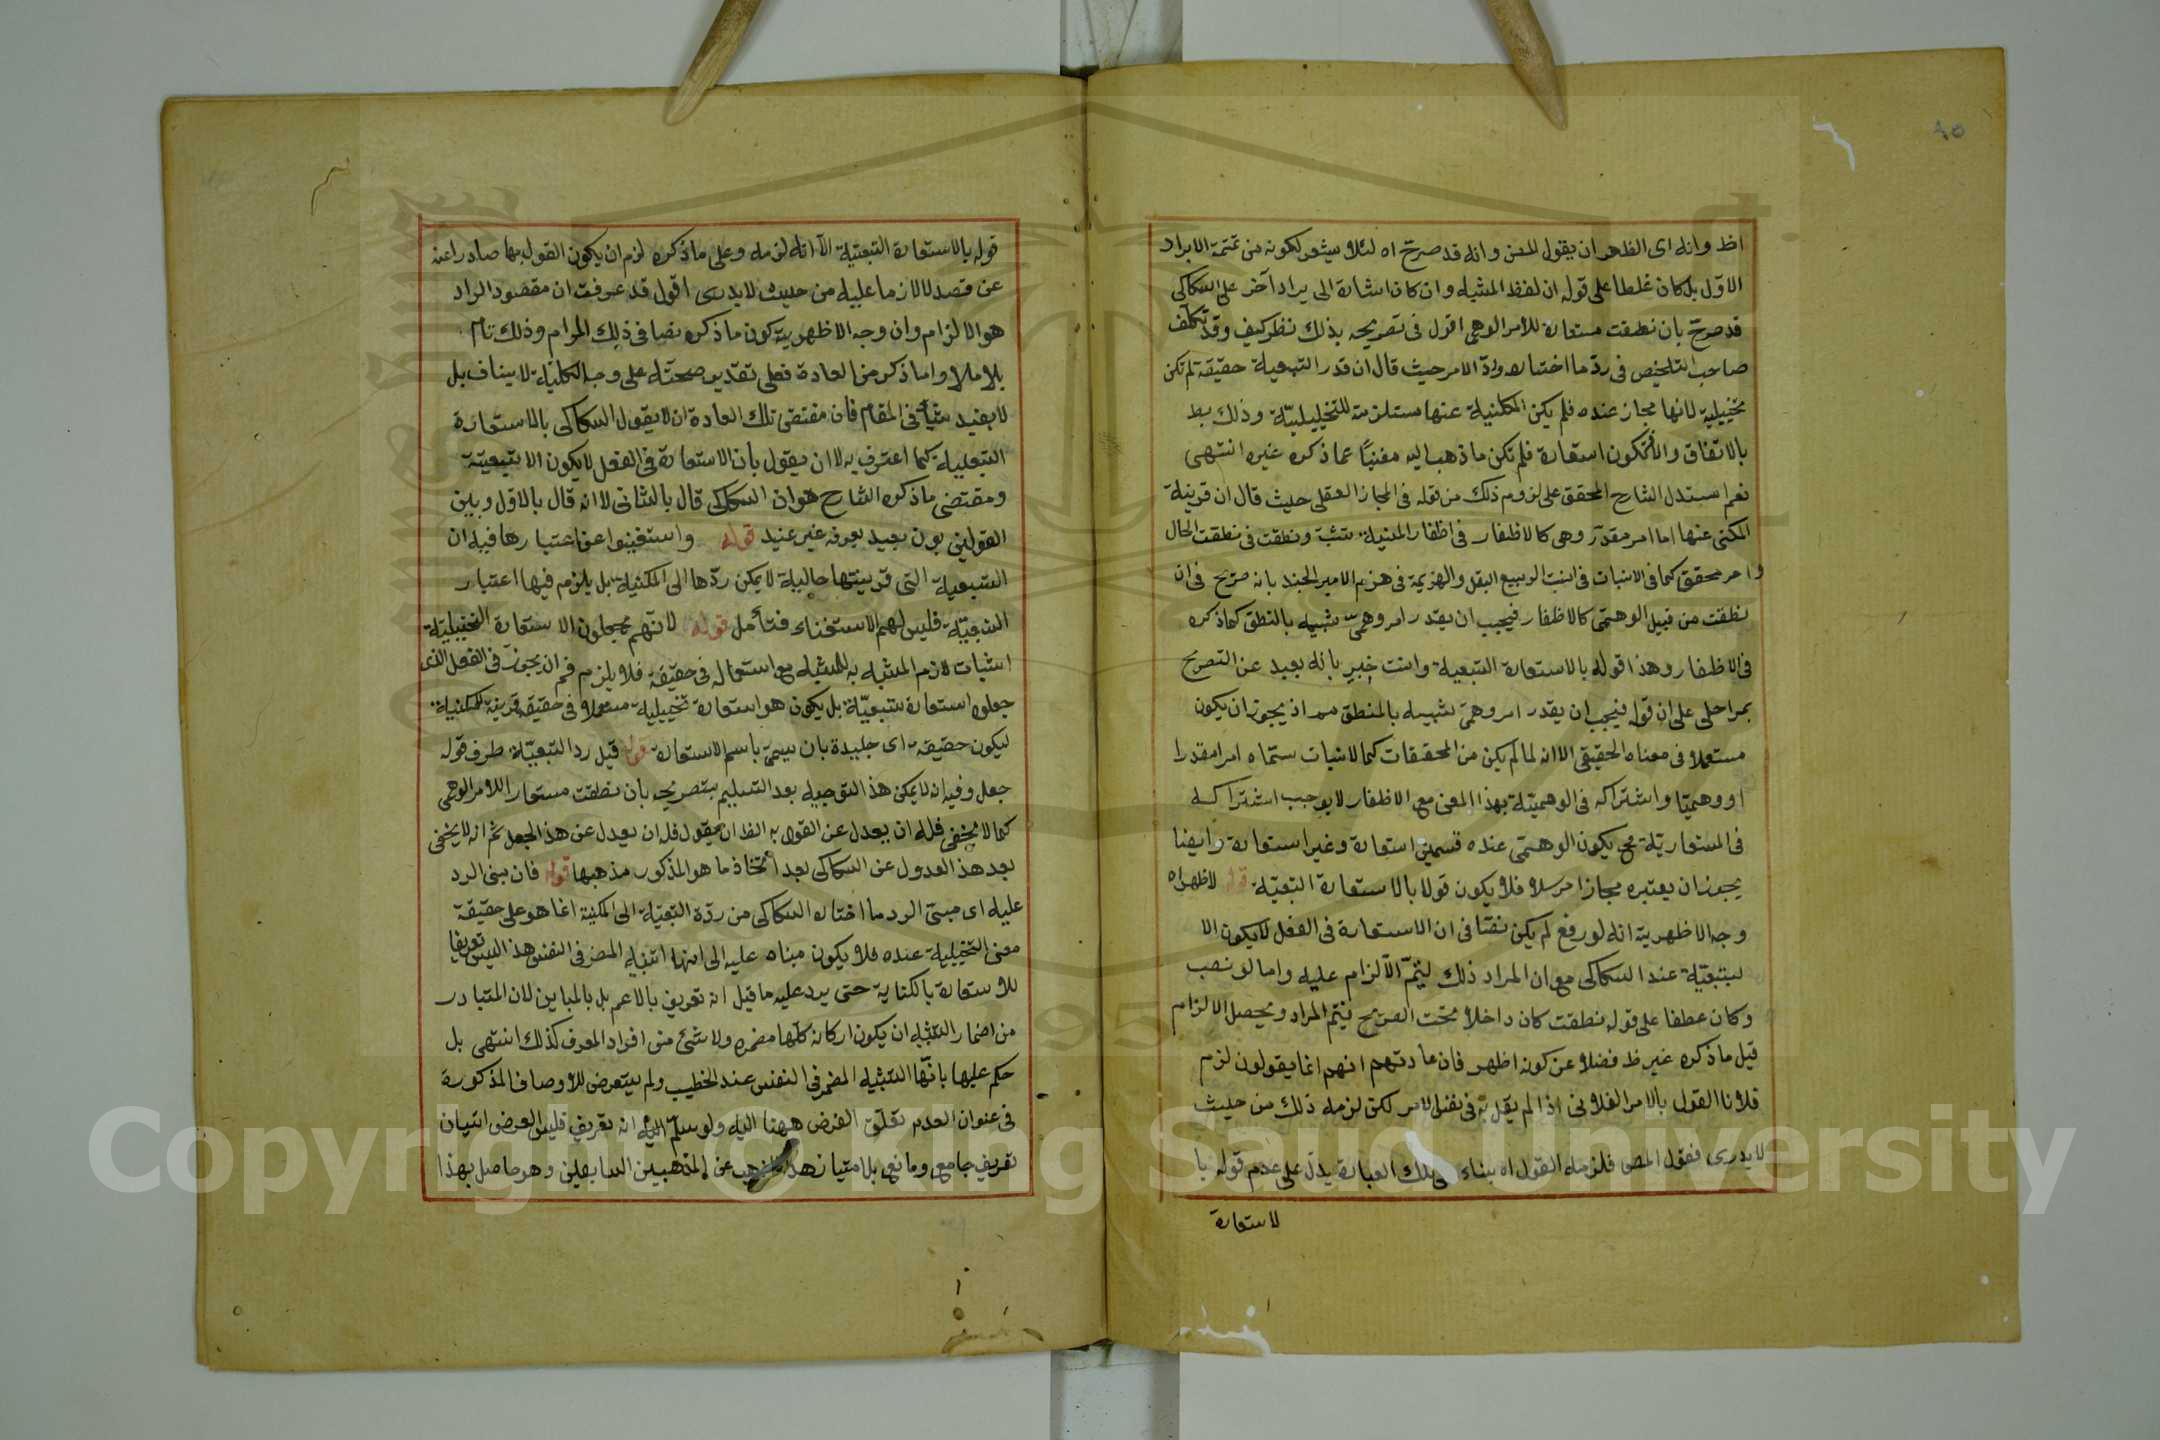 ٨٥
اظ وانه اى الظهر ان يقول للمص وانه قد صرح اه لئلا يشعر لكونه من تتمة الايراد
الاوّل بل كان غلطا على قوله ان لفظ المشبه وان كان اشارة الى يراد آخر على السكاكى
قد صرّح بان نطقت مستعارة للامر الوهمى اقول فى تصريحه بذلك نظر كيف وقد تكلف
صاحب التلخيص فى ردّ ما اختاره ورده الامر حيث قال ان قدر التبعية حقيقة لم تكن
تخييلية لانها مجاز عنده فلم يكن المكنية عنها مستلزمة للتخييلية وذلك بط
بالاتفاق والا فتكون استعارة فلم تكن ما ذهب اليه مغنيًا عما ذكره غيره انتهى
نعم استدل الشارح المحقق على لزوم ذلك من نقله فى المجاز العقلى حيث قال ان قرينة
المكنى عنها اما امر مقدّر وهى كالاظفار فى اظفار المنية ونطقت فى نطقت الحال
وامر محقق كما فى الانبات فى انبت الربيع البقل والهزيمة فى هزم الامير الجند بانه صريح فى ان
نطقت من قبيل الوهمّى كالاظفار فيجب ان يقدر امر وهمىّ شبيه بالنطق كما ذكره
فى الاظفار وهذا قوله بالاستعارة التبعية وانت خبير بانه بعيد عن التصريح
بمراحل على ان قوله فيجب ان يقدر امر وهمىّ شبيه بالمنطق مم اذ يجوز ان يكون
مستعملا فى معناه الحقيقى الا انه لما لم يكن من المحققات كالانبات ستماه امرا مقدرا
او وهميّا واشتراكه فى الوهميّة بهذا المعنى مع الاظفار لا يوجب اشتراكه
فى المستعاريّة مح يكون الوهمىّ عنده قسمين استعارة وغير استعارة وايضا
يجوز ان يعتبره مجازا مرسلا فلا يكون قولا بالاستعارة التبعيّة قوله لاظهر اه
وجه الاظهرية انه لو رفع لم يكن نصّا فى ان الاستعارة فى الفعل لا يكون الا
تبعيّة عند السكاكى مع ان المراد ذلك ليتمّ الالزام عليه واما لو نصب
وكان عطفا على قوله نطقت كان داخلا تحت الصريح فيتم المراد ويحصل الالزام
قيل ما ذكره غير ظ فضلا عن كونه اظهر فان عادتهم انهم انما يقولون لزم
فلانا القول بالامر الفلانى اذا لم يقل به فى نفس الامر لكن لزمه ذلك من حيث
لا يدرى فقول المص فلزمه القول اه بناء على تلك العبارة يدل على عدم قوله با
لاستعارة
قوله بالاستعارة التبعيّة الا انه لزمه وعلى ما ذكره لزم ان يكون القول بها صادرا عنه
عن قصد لا لازما عليه من حيث لا يدرى اقول قد عرفت ان مقصود الراد
هو الالزام وان وجه الاظهرية كون ما ذكره نصا فى ذلك المرام وذلك تام
بلا ملا واما ذكر من العادة فعلى تقدير صحته على وجه الكلية لا ينافى بل
لا يفيد شيأ فى المقام فان مقتضى تلك العادة ان لا يقول السكاكى بالاستعارة
التبعية كما اعترف به لا ان يقول بان الاستعارة فى الفعل لا يكون الا تبعيّة
ومقتضى ما ذكره الشارح هو ان السكاكى قال بالثانى لا انه قال بالاول وبين
القولين بون بعيد يعرفه غير عنيد قوله واستغنوا عن اعتبارها فيه ان
التبعية التى قرينتها حالية لا يمكن ردّها الى المكنية بل يلزم فيها اعتبار
التبعيّة فليس لهم الاستغناء فتأمل قوله لانهم يجعلون الاستعارة التخييليّة
اثبات لازم المشبه به للمشبه مع استعماله فى حقيقة فلا يلزم ان يجوز فى الفعل الذى
جعلوه استعارة تبعيّة بل يكون هو استعارة تخييلية مستعملا فى حقيقة قرينة للمكنية
ليكون حقيقة اى جليدة بان يسمىّ باسم الاستعارة قوله قيل رد التبعيّة طرف قوله
جعل وفيه انه لا يمكن هذا التوجيه بعد التسليم بتصريحه بان نطقت مستعار للامر الوهمى
كما لا يخفى فله ان يعدل عن القول به الظ ان يقول فله ان يعدل عن هذا الجعل ثم انه لا يخفى
بعد هذا العدول عن السكاكى بعد اتخاذ ما هو المذكور مذهبها قوله فان مبنى الرد
عليه اى مبنى الرد ما اختاره السكاكى من ردّه التبعيّة الى المكنية انما هو على حقيقة
معنى التخييلية عنده فلا يكون مبناه عليه الى انها التشبيه المضمر فى النفس هذا ليس تعريفا
للاستعارة بالكناية حتى يرد عليه ما قيل انه تعريف بالاعم بل بالمباين لان المتبادر
من اضمار التشبيه ان يكون اركانه كلها مضمره ولا شئ من افراد المعرف كذلك انتهى بل
حكم عليها بانها التشبيه المضمر فى النفس عند الخطيب ولم يتعرض للاوصاف المذكورة
فى عنوان العدم تعلق الغرض ههنا اليه ولو سلم انه تعريف فليس الغرض اتيان
تعريف جامع ومانع بل امتياز هذا المذهب عن المذهبين السابقين وهو حاصل بهذا
Copyright © King Saud University